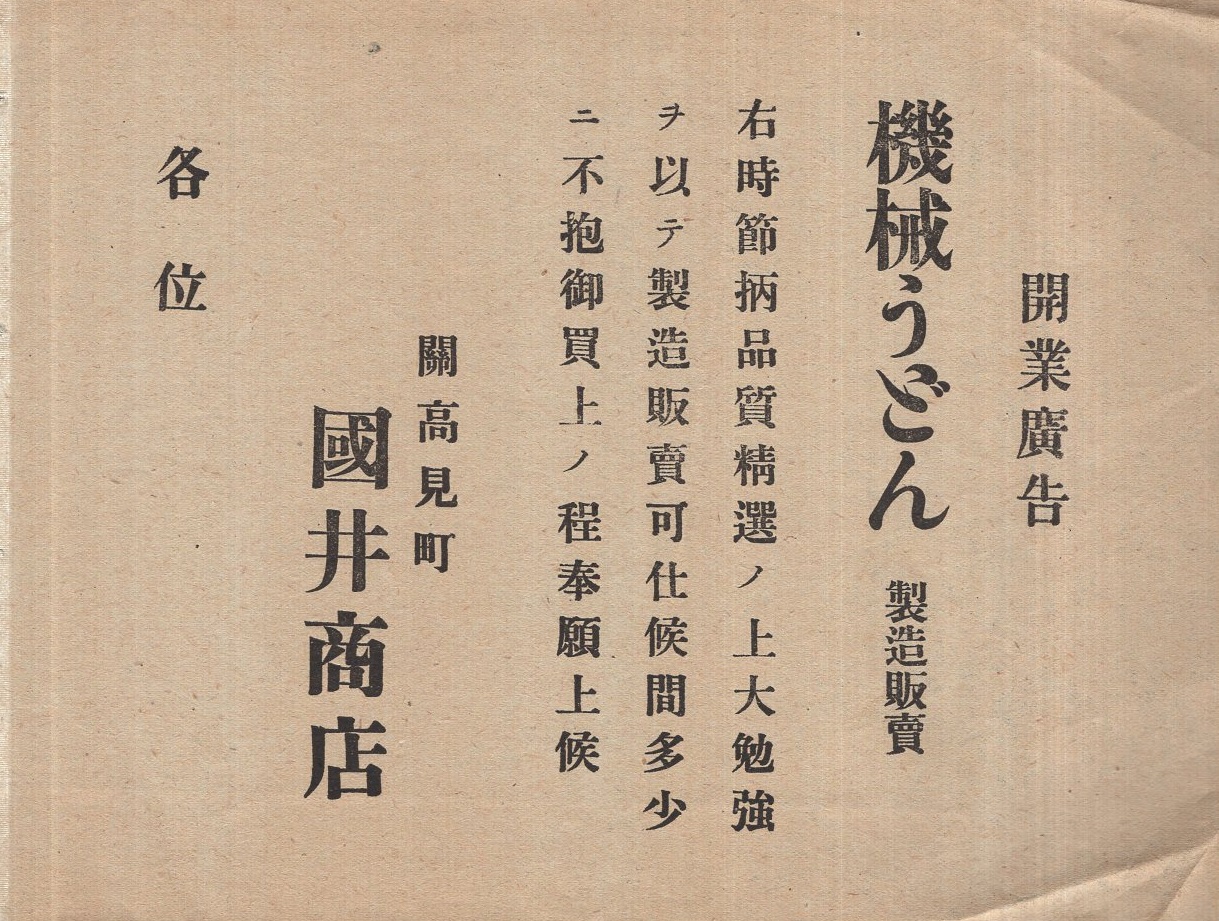 開業廣告
機械うどん 製造販賣
右時節柄品質精選ノ上大勉強
ヲ以テ製造販賣可仕候間多少
ニ不抱御買上ノ程奉願上候
關高見町
國井商店
各位